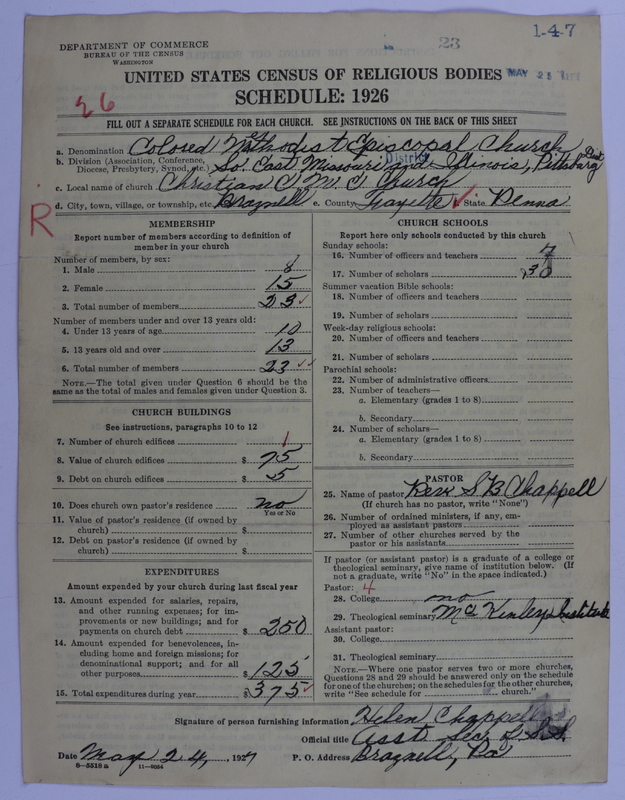 1-4-7
23
DEPARTMENT OF COMMERCE
BUREAU OF THE CENSUS
WASHINGTON
MAY 25
UNITED STATES CENSUS OF RELIGIOUS BODIES
SCHEDULE: 1926
26
FILL OUT A SEPARATE SCHEDULE FOR EACH CHURCH. SEE INSTRUCTIONS ON THE BACK OF THIS SHEET
a. Denomination Colored Methodist Episcopal Church
b. Division (Association, Conference, Diocese, Presbytery, Synod, etc.) So. East, Missouri and Illinois, Pittsburg Dist
District
c. Local name of church Christian C. M. E. Church
d. City, town, village, or township, etc. Braznell e. County Fayette State Penna
R
MEMBERSHIP
Report number of members according to definition of
member in your church
Number of members, by sex:
1. Male 8
2. Female 15
3. Total number of members 23
Number of members under and over 13 years old:
4. Under 13 years of age 10
5. 13 years old and over 13
6. Total number of members 23
NOTE.—The total given under Question 6 should be the
same as the total of males and females given under Question 3.
CHURCH BUILDINGS
See instructions, paragraphs 10 to 12
7. Number of church edifices 1
8. Value of church edifices $ 75
9. Debt on church edifices $ 5
10. Does church own pastor's residence no
Yes or No
11. Value of pastor's residence (if owned by
church) $
12. Debt on pastor's residence (if owned by
church) $
EXPENDITURES
Amount expended by your church during last fiscal year
13. Amount expended for salaries, repairs,
and other running expenses; for im-
provements or new buildings; and for
payments on church debt $ 250
14. Amount expended for benevolences, in-
cluding home and foreign missions; for
denominational support; and for all
other purposes $ 125
15. Total expenditures during year $ 375
CHURCH SCHOOLS
Report here only schools conducted by this church
Sunday schools:
16. Number of officers and teachers 7
17. Number of scholars 30
Summer vacation Bible schools:
18. Number of officers and teachers
19. Number of scholars
Week-day religious schools:
20. Number of officers and teachers
21. Number of scholars
Parochial schools:
22. Number of administrative officers
23. Number of teachers—
a. Elementary (grades 1 to 8)
b. Secondary
24. Number of scholars—
a. Elementary (grades 1 to 8)
b. Secondary
PASTOR
25. Name of pastor Rev. S B Chappell
(If church has no pastor, write "None")
26. Number of ordained ministers, if any, em-
ployed as assistant pastors
27. Number of other churches served by the
pastor or his assistants
If pastor (or assistant pastor) is a graduate of a college or
theological seminary, give name of institution below. (If
not a graduate, write "No" in the space indicated.)
Pastor: 4
28. College no
29. Theological seminary Mc Kinley Institute
Assistant pastor:
30. College
31. Theological seminary
NOTE.—Where one pastor serves two or more churches,
Questions 28 and 29 should be answered only on the schedule
for one of the churches; on the schedules for the other churches,
write "See schedule for church."
Signature of person furnishing information Helen Chappell
Official title Asst. Sec. of S.S.
Date May 24, 1927 P. O. Address Braznell, Pa
8-5518a 11-9054